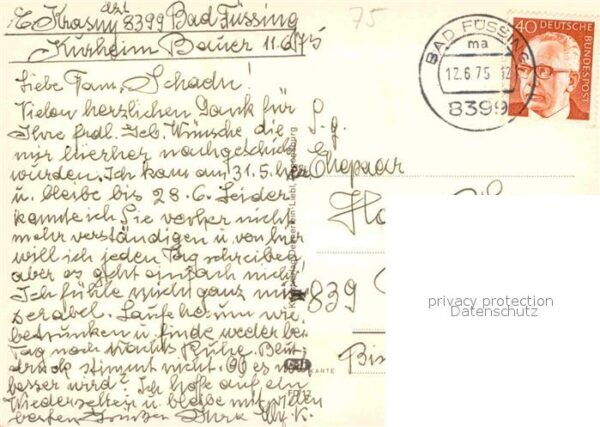 dzt
E. Krasny 8399 Bad Füssing
Kurheim Bauer 11.6.75
75
Liebe Fam. Schadn!
Vielen herzlichen Dank für
Ihre frdl. Geb. Wünsche die
mir hierher nachgeschickt
wurden. Ich kam am 31.5. her
u. bleibe bis 28.6. Leider
konnte ich Sie vorher nicht
mehr verständigen u. von hier
will ich jeden Tag schreiben
aber es geht einfach nicht!
Ich fühle mich ganz mi
serabel. Laufe herum wie
betrunken u. finde weder bei
Tag noch Nachts Ruhe. Blut
druck stimmt nicht. Ob es noch
besser wird? Ich hoffe auf ein
Wiedersehen u. bleibe mit vielen
Grüßen K.
BAD FÜSSING
ma
12.6.75 12
8399
40 DEUTSCHE
BUNDESPOST
S. g.
Ehepaar
839
KARTE
privacy protection
Datenschutz